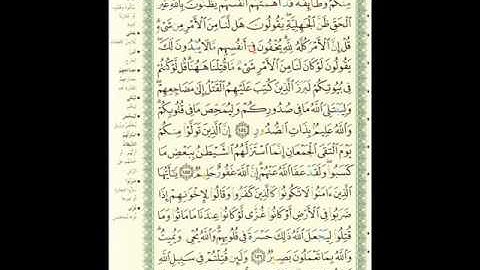 مِنكُمْ وَطَآئِفَةٌ قَدْ أَهَمَّتْهُمْ أَنفُسُهُمْ يَظُنُّونَ بِٱللَّهِ غَيْرَ
ٱلْحَقِّ ظَنَّ ٱلْجَٰهِلِيَّةِ يَقُولُونَ هَل لَّنَا مِنَ ٱلْأَمْرِ مِن شَىْءٍ
قُلْ إِنَّ ٱلْأَمْرَ كُلَّهُۥ لِلَّهِ يُخْفُونَ فِىٓ أَنفُسِهِم مَّا لَا يُبْدُونَ لَكَ
يَقُولُونَ لَوْ كَانَ لَنَا مِنَ ٱلْأَمْرِ شَىْءٌ مَّا قُتِلْنَا هَٰهُنَا قُل لَّوْ كُنتُمْ
فِى بُيُوتِكُمْ لَبَرَزَ ٱلَّذِينَ كُتِبَ عَلَيْهِمُ ٱلْقَتْلُ إِلَىٰ مَضَاجِعِهِمْ
وَلِيَبْتَلِىَ ٱللَّهُ مَا فِى صُدُورِكُمْ وَلِيُمَحِّصَ مَا فِى قُلُوبِكُمْ
وَٱللَّهُ عَلِيمٌۢ بِذَاتِ ٱلصُّدُورِ ١٥٤ إِنَّ ٱلَّذِينَ تَوَلَّوْا۟ مِنكُمْ
يَوْمَ ٱلْتَقَى ٱلْجَمْعَانِ إِنَّمَا ٱسْتَزَلَّهُمُ ٱلشَّيْطَٰنُ بِبَعْضِ مَا
كَسَبُوا۟ وَلَقَدْ عَفَا ٱللَّهُ عَنْهُمْ إِنَّ ٱللَّهَ غَفُورٌ حَلِيمٌ ١٥٥ يَٰٓأَيُّهَا
ٱلَّذِينَ ءَامَنُوا۟ لَا تَكُونُوا۟ كَٱلَّذِينَ كَفَرُوا۟ وَقَالُوا۟ لِإِخْوَٰنِهِمْ إِذَا
ضَرَبُوا۟ فِى ٱلْأَرْضِ أَوْ كَانُوا۟ غُزًّى لَّوْ كَانُوا۟ عِندَنَا مَا مَاتُوا۟ وَمَا
قُتِلُوا۟ لِيَجْعَلَ ٱللَّهُ ذَٰلِكَ حَسْرَةً فِى قُلُوبِهِمْ وَٱللَّهُ يُحْىِۦ وَيُمِيتُ
وَٱللَّهُ بِمَا تَعْمَلُونَ بَصِيرٌ ١٥٦ وَلَئِن قُتِلْتُمْ فِى سَبِيلِ ٱللَّهِ